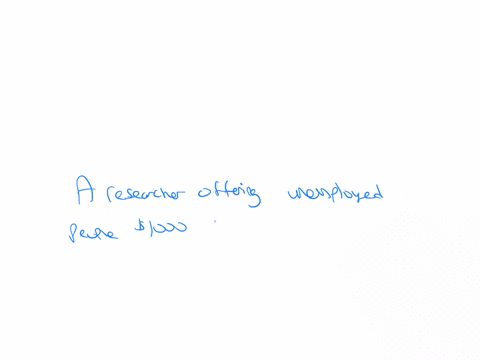 A researcher offering unemployed
people $1,000